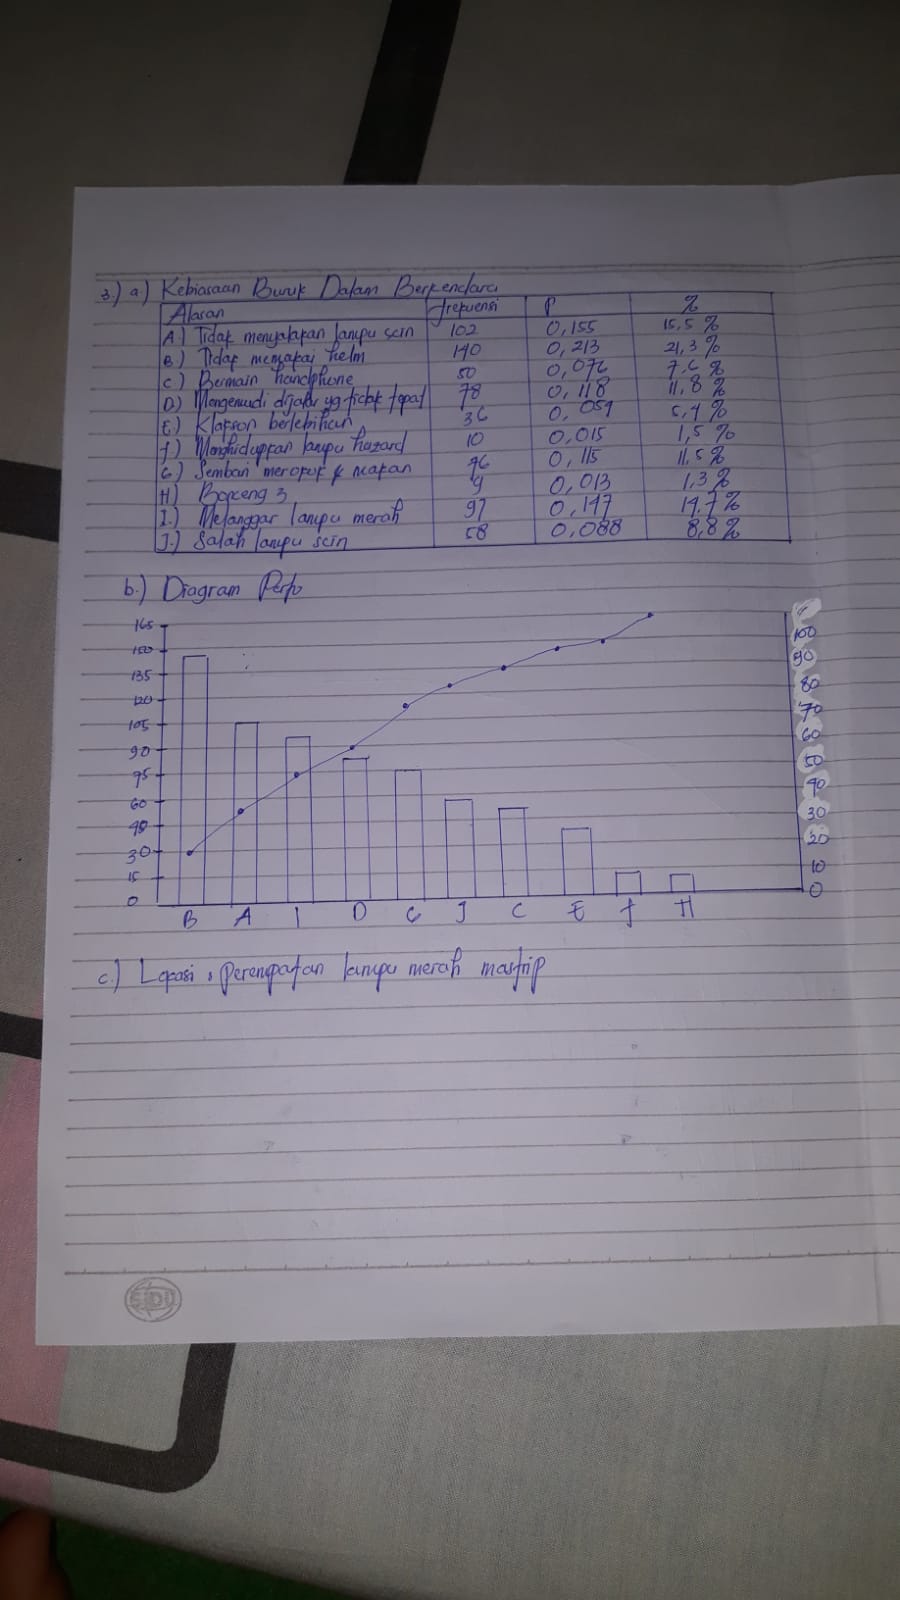 3.) a.) Kebiasaan Buruk Dalam Berkendara
Alasan frekuensi P %
A.) Tidak menyalakan lampu sein 102 0,155 15,5 %
B.) Tidak memakai helm 140 0,213 21,3 %
C.) Bermain handphone 50 0,076 7,6 %
D.) Mengemudi dijalur yg tidak tepat 78 0,118 11,8 %
E.) Klakson berlebihan 36 0,054 5,4 %
f.) Menghidupkan lampu hazard 10 0,015 1,5 %
G.) Sembari merokok & makan 76 0,115 11,5 %
H.) Bonceng 3 9 0,013 1,3 %
I.) Melanggar lampu merah 97 0,147 14,7 %
J.) Salah lampu sein 58 0,088 8,8 %
b.) Diagram
165
150 100
135 90
120 80
105 70
90 60
75 50
60 40
45 30
30 20
15 10
0 0
B A I D G J C E f H
c.) Lokasi : perempatan lampu merah mastrip
SIDU